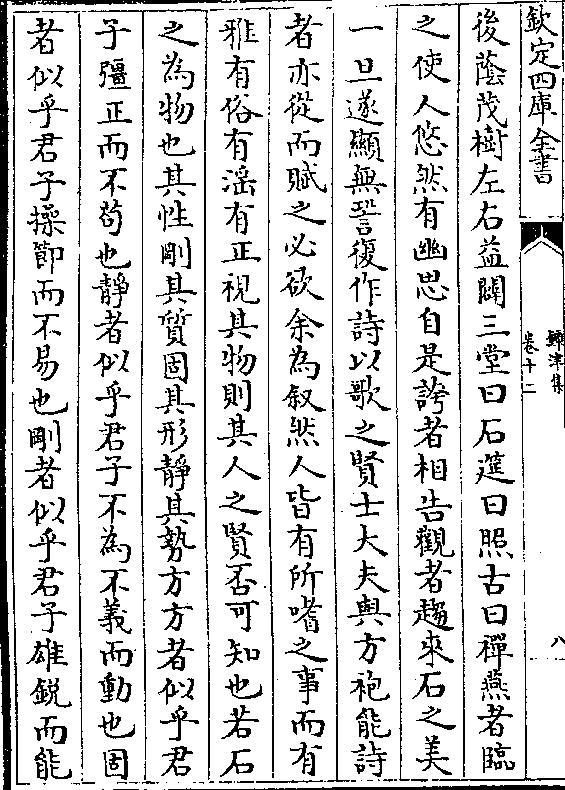 欽定四庫全書
鐔津集
卷十二
八
後蔭茂樹左右益闢三堂曰石筵曰照古曰禪燕者臨
之使人悠然有幽思自是誇者相告觀者趨來石之美
一旦遂顯無訔復作詩以歌之賢士大夫與方袍能詩
者亦從而賦之必欲余為叙然人皆有所嗜之事而有
雅有俗有滛有正視其物則其人之賢否可知也若石
之為物也其性剛其質固其形靜其勢方方者似乎君
子彊正而不苟也靜者似乎君子不為不義而動也固
者似乎君子操節而不易也剛者似乎君子雄鋭而能